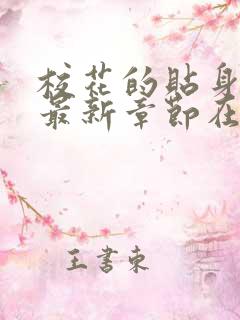 校花的貼身
最新章節在
王書東